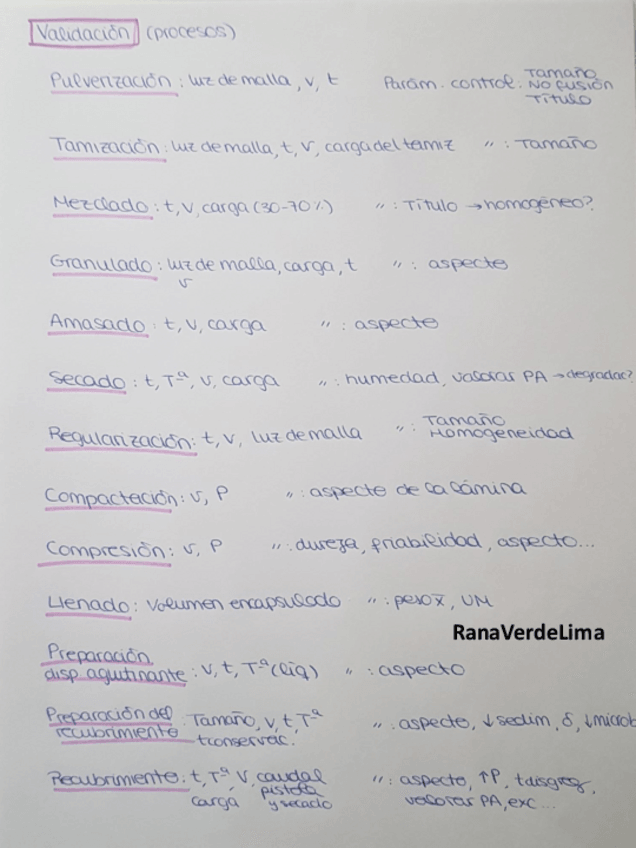 Validación (procesos)
Pulverización: luz de malla, v, t Parám. control: Tamaño
NO fusión
Título
Tamización: luz de malla, t, v, carga del tamiz " : Tamaño
Mezclado: t, v, carga (30-70%) " : Título → homogéneo?
Granulado: luz de malla, carga, t " : aspecto
v
Amasado: t, v, carga " : aspecto
Secado: t, Tª, v, carga " : humedad, valorar PA → degradac?
Regularización: t, v, luz de malla " : Tamaño
Homogeneidad
Compactación: v, P " : aspecto de la lámina
Compresión: v, P " : dureza, friabilidad, aspecto...
Llenado: Volumen encapsulado " : peso x̄, UM
RanaVerdeLima
Preparación
disp. aglutinante: v, t, Tª (líq) " : aspecto
Preparación del Tamaño, v, t, Tª " : aspecto, ↓ sedim, δ, ↓ microb
recubrimiento tconservac.
Recubrimiento: t, Tª, v, caudal " : aspecto, ↑P, tdisgreg,
carga pistola valorar PA, exc...
y secado